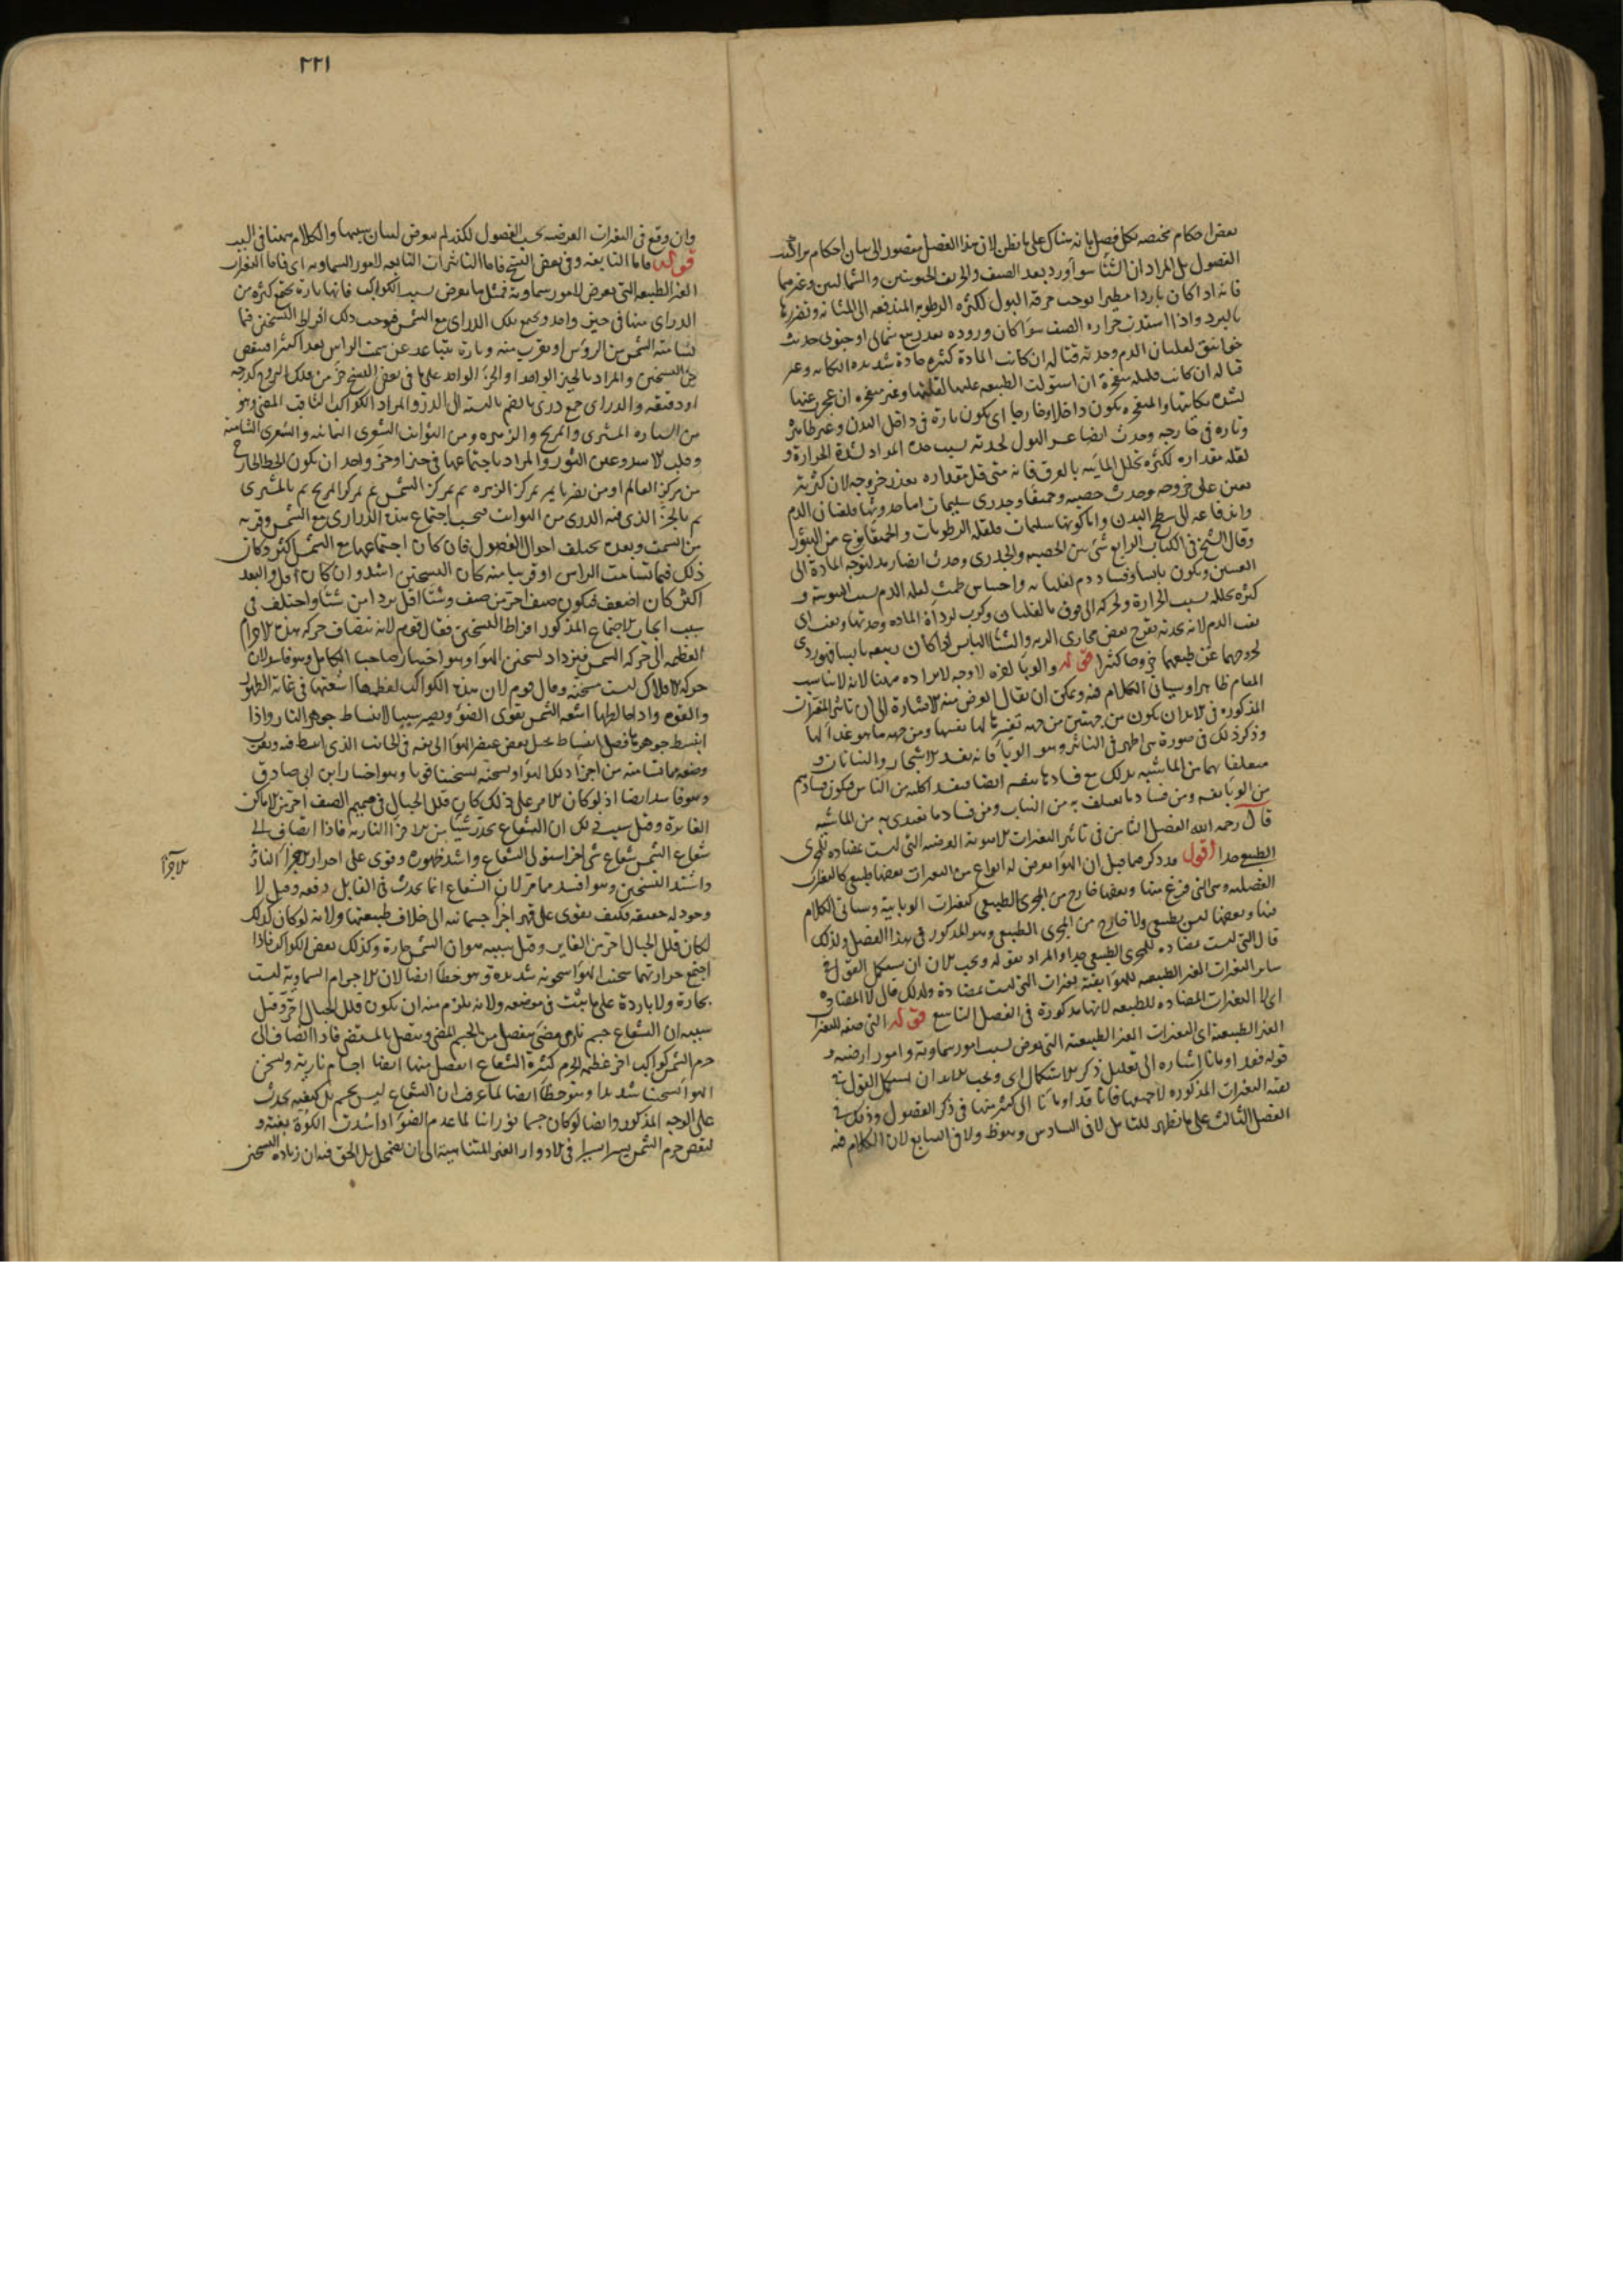 بعض احكام مختصه بكل فصل بانه شاك على ما نظن لان هذا الفصل مقصور الى بيان احكام تراكيب
الفصول بل المراد ان الشتا سوا ورد بعد الصيف والخريف الجنوبيين والشماليين وغيرهما
فانه اذا كان باردا مطيرا يوجب حرقة البول لكثرة الرطوبه المندفعه الى المثانه وتضررها
بالبرد واذا اشتدت حرارة الصيف سوا كان وروده بعد ربيع شمالي او جنوبي حدثت
خوانيق لغليان الدم وحدته قتاله ان كانت المادة كثيره حادة شديده النكايه وغير
قتاله ان كانت قليله منفجرة ان استولت الطبيعه عليها لقلتها وغير منفجره ان عجزت عنها
لشدة نكايتها والمنفجره يكون داخلا وخارجا اى يكون تارة فى داخل البدن وغير ظاهر
وتاره فى خارجه وحدث ايضا عسر البول لحدته بسبب حدة المواد لشدة الحرارة و
لقله مقداره لكثرة تحلل المائيه بالعرق فانه متى قل مقداره تعذر خروجه لان كثرته
تعين على خروجه وحدث حصبه وحميقا وجدرى سليمات اما حدوثها فلغليان الدم
واندفاعه الى سطح البدن واما كونها سليمات فلقله الرطوبات والحميقا نوع من البثور
وقال الشيخ فى الكتاب الرابع شئ بين الحصبه والجدرى وحدث ايضا رمد لتوجه المادة الى
العينين ويكون يابسا وفساد دم لغليانه واحتباس طمث لقله الدم بسبب اليبوسة و
كثرة تحلله بسبب الحرارة ولحركته الى فوق بالغليان وكرب لرداءة الماده وحدتها ونفث اى
نفث الدم لانه بحدته يقرح بعض مجارى الريه والشتا اليابس اذا كان ربيعه يابسا فهو ردى
لخروجهما عن طبيعهما خروجا كثيرا قوله والوبا لغيره لا وجه لايراده ههنا لانه لا يناسب
المقام ظاهرا وسياتى الكلام فيه ويمكن ان يقال الغرض منه الاشارة الى ان تاثير المتغيرات
المذكوره فى الابدان يكون من جهتين من جهة تغيرها لها بنفسها ومن جهة ما هو غذا لها
وذكر ذلك فى صورة هى اظهر فى التاثير وهو الوبا فانه يفسد الاشجار والنباتات و
متعلقا بهما من الماشيه بذلك مع فسادها بنفسه ايضا فيفسد اكليه من الناس فيكون فسادهم
من الوبا نفسه ومن فساد ما يعتلف به من النبات ومن فساد ما يغتذى به من الماشيه
قال رحمه الله الفصل الثامن فى تاثير التغيرات الهوائية العرضيه التى ليست بمضاده للمجرى
الطبيعى جدا اقول قد ذكر مما قبل ان الهوا يعرض له انواع من التغيرات بعضها طبيعى كالتغيرات
الفصليه وهى التى فرغ منها وبعضها خارج من المجرى الطبيعى كتغيرات الوبايية وسياتى الكلام
فيها وبعضها ليس بطبيعى ولا خارج من المجرى الطبيعى وهو المذكور فى هذا الفصل ولذلك
قال التى ليست بمضاده للمجرى الطبيعى جدا والمراد بقوله ويجب الان ان نستكمل القول فى
ساير التغيرات الغير الطبيعيه للهوا بقية تغيرات التى ليست بمضادة ولذلك قال لا المضادة
اى لا التغيرات المضاده للطبيعه لانها مذكورة فى الفصل التاسع قوله التى صفة للتغيرات
الغير الطبيعية اى التغيرات الغير الطبيعية التى تعرض بسبب امور سماوية وامور ارضيه و
قوله فقد اومانا اشاره الى تعليل ذكر الاستكمال اى ويجب علينا ان نستكمل القول فى
بقية التغيرات المذكوره لا جميعها فانا قد اومانا الى كثير منها فى ذكر الفصول وذلك فى
الفصل الثالث على ما يظهر للتامل لا فى السادس وهو ظ ولا فى السابع لان الكلام فيه
٢٢١
وان وقع فى التغيرات العرضيه بحسب الفصول لكنه لم يتعرض لبيان سببها والكلام ههنا فى السبب
قوله فاما التابعه وفى بعض النسخ فاما التاثيرات التابعه لامور السماويه اى فاما التغيرات
الغير الطبيعيه التى تعرض لامور سماوية فمثل ما يعرض بسبب الكواكب فانها تارة يجتمع كثير من
الدرارى منها فى حيز واحد ويجتمع تلك الدرارى مع الشمس فيوجب ذلك افراط التسخين فيما
تسامته الشمس من الرؤس او تقرب منه وتارة يتباعد عن سمت الراس بعدا كثيرا فينقص
من التسخين والمراد بالحيز الواحد او الجزء الواحد على ما فى بعض النسخ جزء من فلك البروج كدرجه
او دقيقه والدرارى جمع درى بالضم بالنسبة الى الدر والمراد الكواكب الثاقب المضى وهو
من السياره المشترى والمريخ والزهره ومن الثوابت الشعرى اليمانيه والشعرى الشامية
وقلب الاسد وعين الثور والمراد باجتماعها فى حيز او جزء واحد ان يكون الخط الخارج
من مركز العالم او من بصرنا يمر بمركز الزهره ثم بمركز الشمس ثم بمركز المريخ ثم بالمشترى
ثم بالجزء الذى فيه الدرى من الثوابت فبحسب اجتماع هذه الدرارى مع الشمس وقربه
من السمت وبعده يختلف احوال الفصول فان كان اجتماعها مع الشمس اكثر وكان
ذلك فيما تسامت الراس او قريبا منه كان التسخين اشد وان كان اقل والبعد
اكثر كان اضعف فيكون صيف احر من صيف وشتا اقل بردا من شتا واختلف فى
سبب ايجاب الاجتماع المذكور افراط التسخين فقال قوم لانه ينضاف حركة هذه الاجرام
العظيمه الى حركة الشمس فيزداد تسخين الهوا وهو اختيار صاحب الكامل وهو فاسد لان
حركة الافلاك ليست مسخنه وقال قوم لان هذه الكواكب لعظمها اشعتها فى غاية الظهور
والقوه واذا خالطها اشعة الشمس يقوى الضوء ويصير سببا لانبساط جوهر النار واذا
انبسط جوهر ما فضل انبساط يحيل بعض عنصر الهوا الى نفسه فى الجانب الذى انبسط فيه ويقرب
وضعه مما تسامته من اجزاء ذلك الهوا ويسخنه تسخينا قويا وهو اختيار ابن ابى صادق
وهو فاسد ايضا اذ لو كان الامر على ذلك كان قلل الجبال فى صميم الصيف احر من الاماكن
الغايرة وقيل سبب ذلك ان الشعاع يحدر شيئا من الاجزاء الناريه فاذا انضاف الى
شعاع الشمس شعاع شئ اخر استولى الشعاع واشتد ظهوره وقوى على احدار الاجزاء الناريه
واشتد التسخين وهو افسد مما مر لان الشعاع انما يحدث فى القابل دفعه وقيل لا
وجود له حقيقه فكيف يقوى على قهر اجزاء جسمانيه الى خلاف طبيعتها ولانه لو كان كذلك
لكان قلل الجبال احر من الغاير وقيل سببه هو ان الشمس حارة وكذلك بعض الكواكب فاذا
اجتمع حرارتهما سخنت الهوا سخونة شديدة وهو خطأ ايضا لان الاجرام السماوية ليست
بحارة ولا باردة على ما يثبت فى موضعه ولانه يلزم منه ان يكون قلل الجبال احر وقيل
سببه ان الشعاع جسم نارى مضى ينفصل من الجسم المضى ويتصل بالمستضى فاذا انضاف الى
جرم الشمس كواكب اخر عظيمه الجرم كثيرة الشعاع انفصل منها ايضا اجسام نارية وتسخن
الهوا تسخينا شديدا وهو خطأ ايضا لما عرف ان الشعاع ليس بجسم بل كيفية يحدث
على الوجه المذكور وايضا لو كان جسما نورانيا لما عدم الضوء اذا سدت الكوة بغتة و
لنقص جرم الشمس يسيرا يسيرا فى الادوار الغير المتناهية الى ان يضمحل بل الحق فيه ان زيادة التسخين
الاجزاء